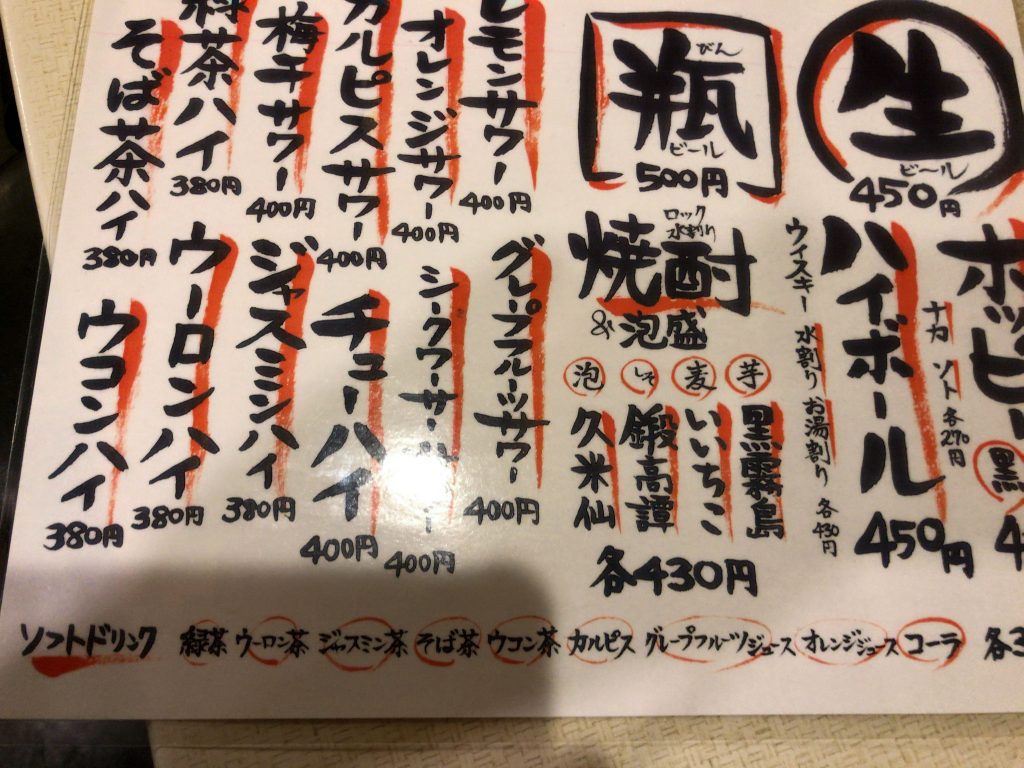 生
ビール
450円
瓶
びん
ビール
500円
ホッピー
ナカ ソト 各270円
黒
ハイボール
450円
ウイスキー 水割り お湯割り 各430円
焼酎
ロック
水割り
&泡盛
芋 黒霧島
麦 いいちこ
しそ 鍛高譚
泡 久米仙
各430円
レモンサワー
400円
オレンジサワー
400円
カルピスサワー
400円
梅干サワー
400円
緑茶ハイ
380円
そば茶ハイ
380円
グレープフルーツサワー
400円
シークワーサー
400円
チューハイ
400円
ジャスミンハイ
380円
ウーロンハイ
380円
ウコンハイ
380円
ソフトドリンク 緑茶 ウーロン茶 ジャスミン茶 そば茶 ウコン茶 カルピス グレープフルーツジュース オレンジジュース コーラ 各3